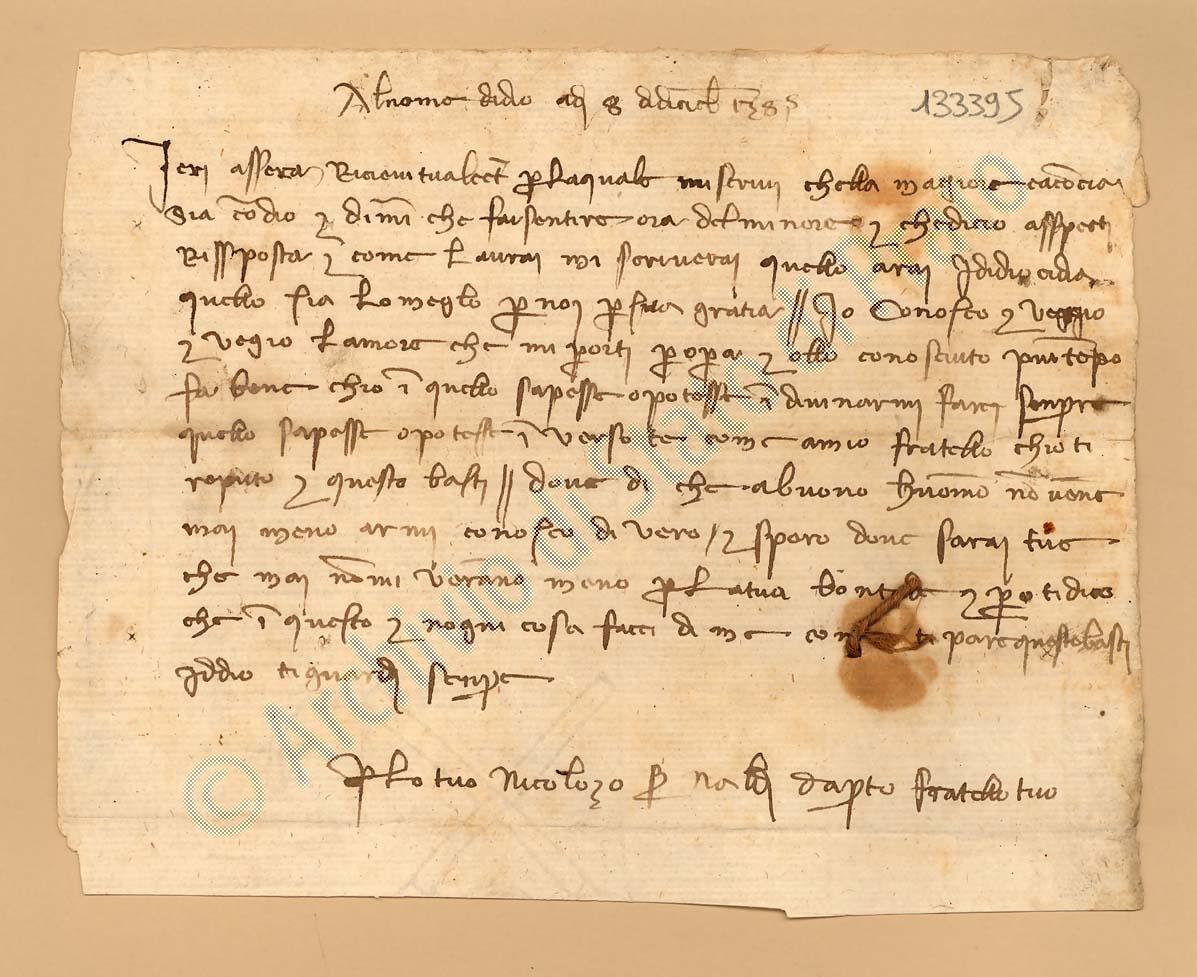 Al nome didio adi 8 didicieb
133395
Ieri assera Ricievi tua lett p laquale mi scrivi chella magiore eaconcia
Sia c dio e dimi che fai sentire ora del minore e che dicio asspetti
Rissposta e come L avrai mi scriverai quello arai Ididio cida
quello sia Lo meglo p noi p sua gratia // Io Conosco e veggio
e vegio L amore che mi porti p opa e ollo conosciuto piu tepo
fa bene chio i quello sapesse o potesse i divinarmi farei senpre
quello sapesse o potesse i verso te come a mio fratello chio ti
reputo e questo basti // dove di che a buono huomo no vene
mai meno or mi conosco di vero / e spero dove sarai tue
che mai nomi verano meno p La tua bontade e po ti dico
che i questo e nogni cosa facci di me come ti pare questo basti
Iddio ti guardi senpre
p Lo tuo Nicolozo naldi dapto fratello tuo
© Archivio di Stato di Prato